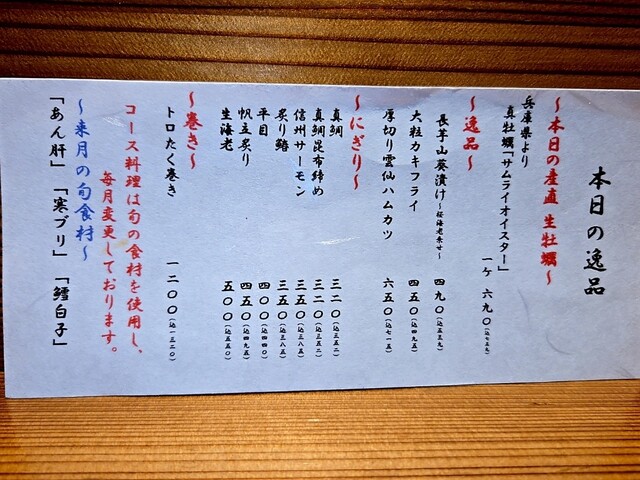 本日の逸品
〜本日の産直 生牡蠣〜
兵庫県より
真牡蠣「サムライオイスター」 一ケ 六九〇(込七五九)
〜逸品〜
長芋山葵漬け〜桜海老乗せ〜 四九〇(込五三九)
大粒カキフライ 四五〇(込四九五)
厚切り雲仙ハムカツ 六五〇(込七一五)
〜にぎり〜
真鯛 三二〇(込三五二)
真鯛昆布締め 三二〇(込三五二)
信州サーモン 三五〇(込三八五)
炙り鰆 三五〇(込三八五)
平目 四〇〇(込四四〇)
帆立炙り 四五〇(込四九五)
生海老 五〇〇(込五五〇)
〜巻き〜
トロたく巻き 一二〇〇(込一三二〇)
コース料理は旬の食材を使用し、
毎月変更しております。
〜来月の旬食材〜
「あん肝」「寒ブリ」「鱈白子」